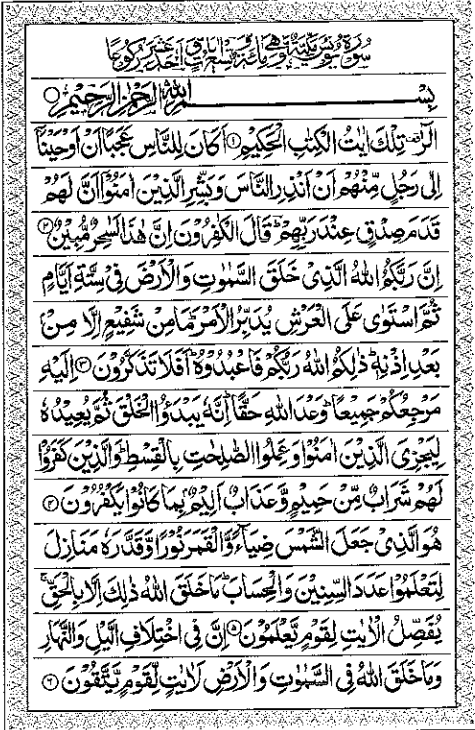 سُوْرَةُ يُوْنُسَ مَكِّيَّةٌ وَّهِيَ مِائَةٌ وَّتِسْعُ اٰيَاتٍ وَّاَحَدَ عَشَرَ رُكُوْعًا
بِسْمِ اللّٰهِ الرَّحْمٰنِ الرَّحِيْمِ ۝
الٓرٰ ۚ تِلْكَ اٰيٰتُ الْكِتٰبِ الْحَكِيْمِ ۝۱ اَكَانَ لِلنَّاسِ عَجَبًا اَنْ اَوْحَيْنَاۤ
اِلٰى رَجُلٍ مِّنْهُمْ اَنْ اَنْذِرِ النَّاسَ وَبَشِّرِ الَّذِيْنَ اٰمَنُوْۤا اَنَّ لَهُمْ
قَدَمَ صِدْقٍ عِنْدَ رَبِّهِمْ ؕ قَالَ الْكٰفِرُوْنَ اِنَّ هٰذَا لَسٰحِرٌ مُّبِيْنٌ ۝۲
اِنَّ رَبَّكُمُ اللّٰهُ الَّذِيْ خَلَقَ السَّمٰوٰتِ وَالْاَرْضَ فِيْ سِتَّةِ اَيَّامٍ
ثُمَّ اسْتَوٰى عَلَى الْعَرْشِ يُدَبِّرُ الْاَمْرَ ؕ مَا مِنْ شَفِيْعٍ اِلَّا مِنْۢ
بَعْدِ اِذْنِهٖ ؕ ذٰلِكُمُ اللّٰهُ رَبُّكُمْ فَاعْبُدُوْهُ ؕ اَفَلَا تَذَكَّرُوْنَ ۝۳ اِلَيْهِ
مَرْجِعُكُمْ جَمِيْعًا ؕ وَعْدَ اللّٰهِ حَقًّا ؕ اِنَّهٗ يَبْدَؤُا الْخَلْقَ ثُمَّ يُعِيْدُهٗ
لِيَجْزِيَ الَّذِيْنَ اٰمَنُوْا وَعَمِلُوا الصّٰلِحٰتِ بِالْقِسْطِ ؕ وَالَّذِيْنَ كَفَرُوْا
لَهُمْ شَرَابٌ مِّنْ حَمِيْمٍ وَّعَذَابٌ اَلِيْمٌۢ بِمَا كَانُوْا يَكْفُرُوْنَ ۝۴
هُوَ الَّذِيْ جَعَلَ الشَّمْسَ ضِيَآءً وَّالْقَمَرَ نُوْرًا وَّقَدَّرَهٗ مَنَازِلَ
لِتَعْلَمُوْا عَدَدَ السِّنِيْنَ وَالْحِسَابَ ؕ مَا خَلَقَ اللّٰهُ ذٰلِكَ اِلَّا بِالْحَقِّ ۚ
يُفَصِّلُ الْاٰيٰتِ لِقَوْمٍ يَّعْلَمُوْنَ ۝۵ اِنَّ فِي اخْتِلَافِ الَّيْلِ وَالنَّهَارِ
وَمَا خَلَقَ اللّٰهُ فِي السَّمٰوٰتِ وَالْاَرْضِ لَاٰيٰتٍ لِّقَوْمٍ يَّتَّقُوْنَ ۝۶